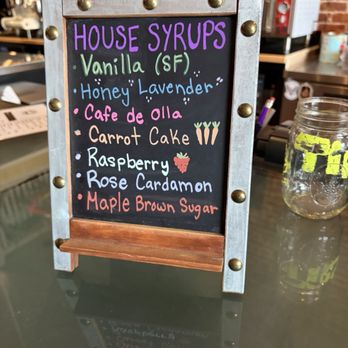 HOUSE SYRUPS
• Vanilla (SF)
• Honey Lavender
• Cafe de olla
• Carrot Cake
• Raspberry
• Rose Cardamon
• Maple Brown Sugar